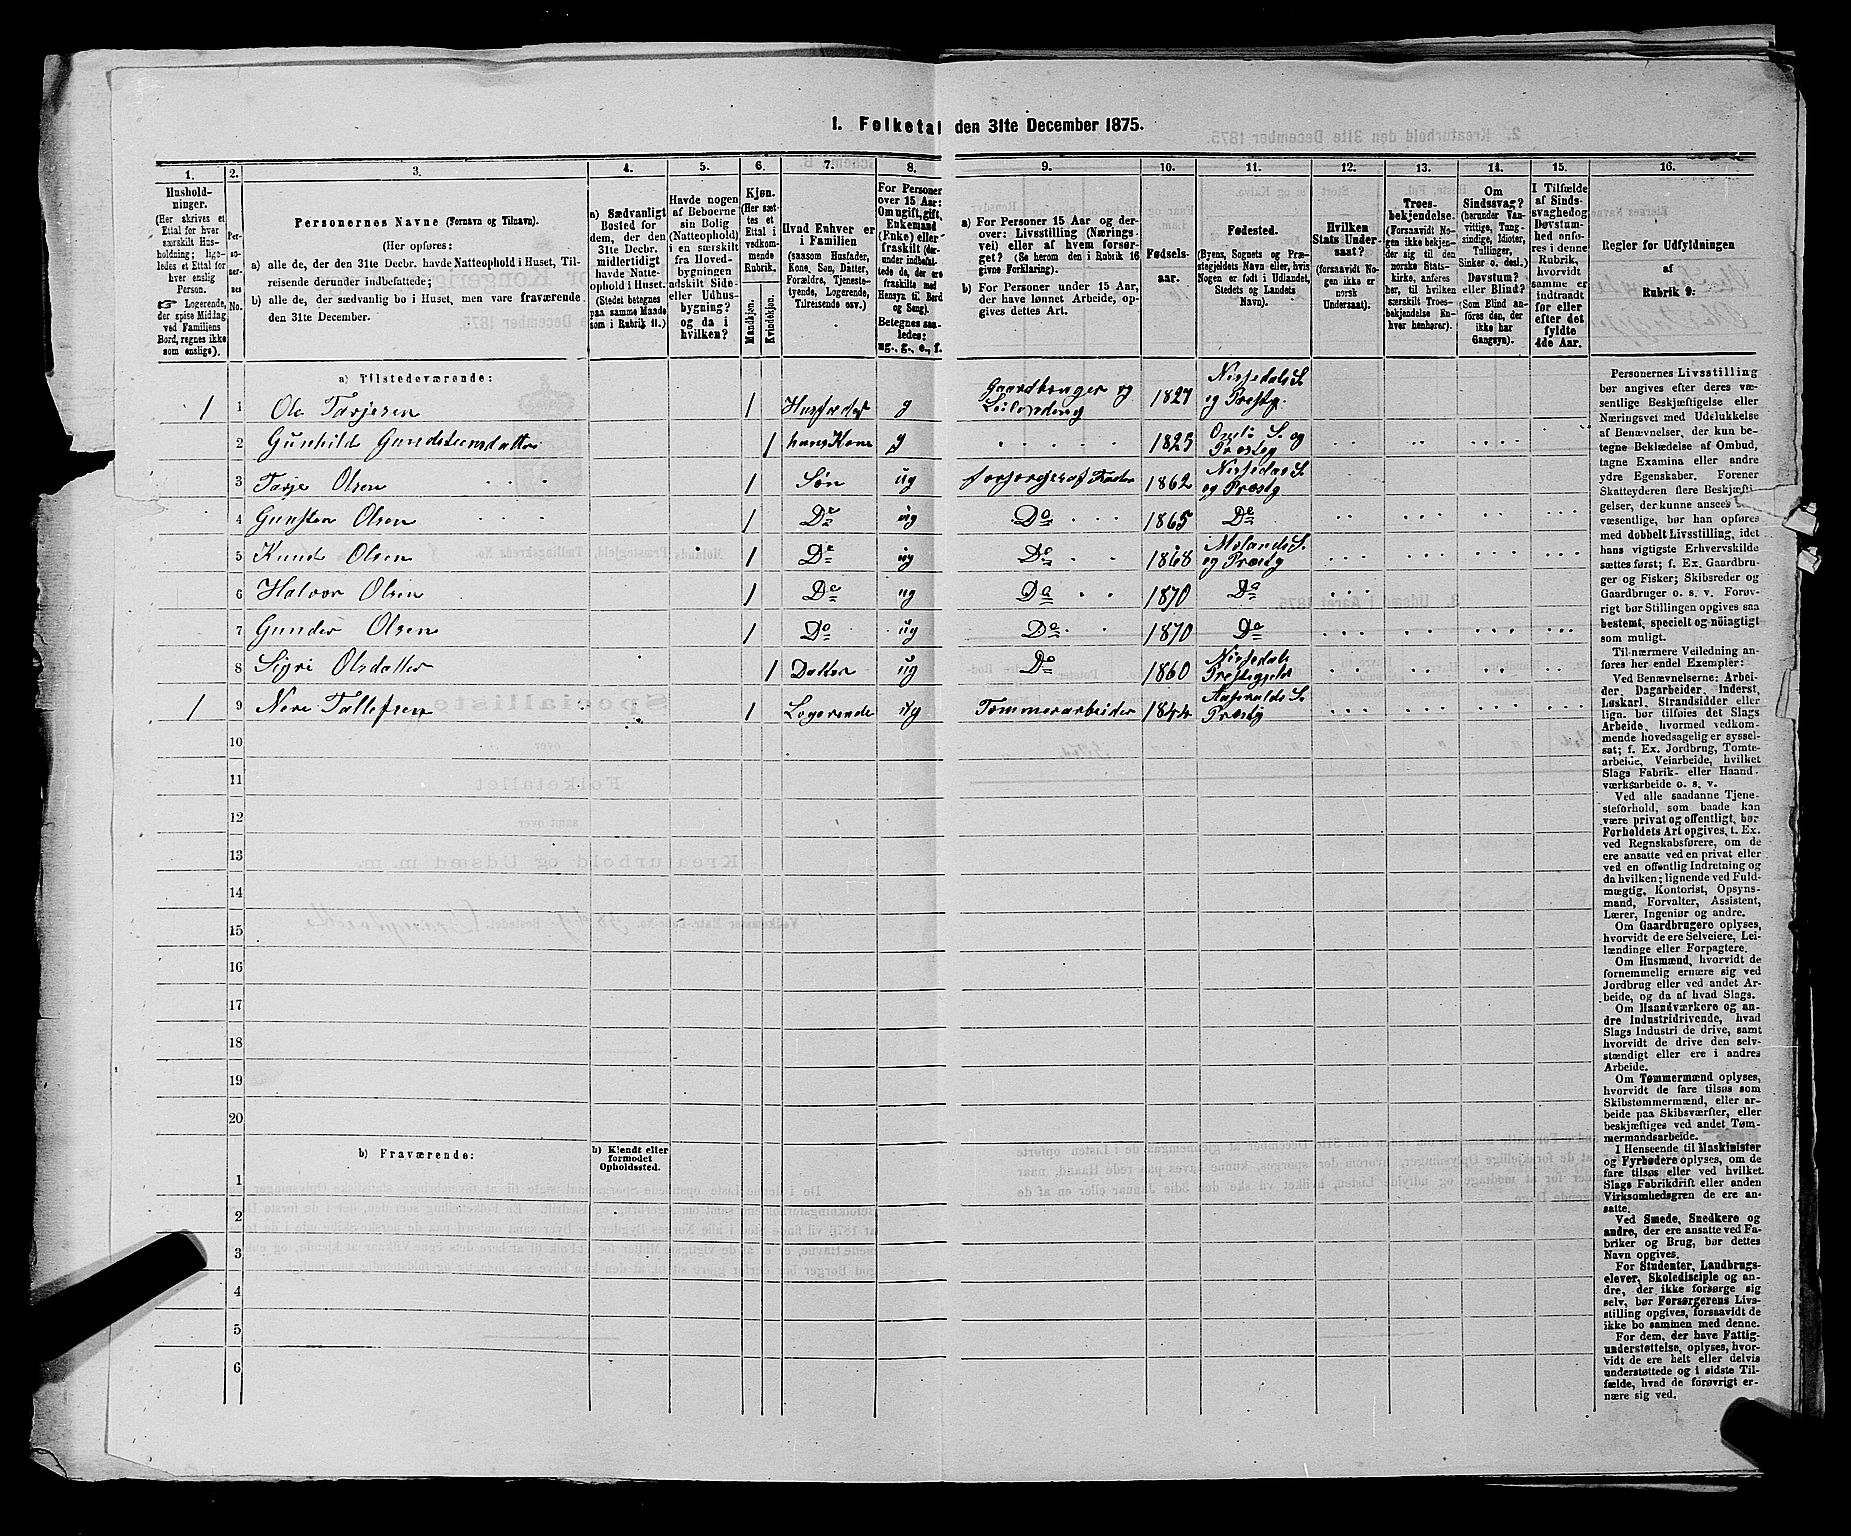 1. Folketal den 31te December 1875.
1. 2. 3. 4. 5. 6. 7. 8. 9. 10. 11. 12. 13. 14. 15. 16.
Hushold-
ninger.
(Her skrives et
Ettal for hver
særskilt Hus-
holdning; lige-
ledes et Ettal for
hver enslig
Person.
☞ Logerende,
der spise Middag
ved Familiens
Bord, regnes ikke
som enslige).
Per-
so-
ner-
nes
No.
Personernes Navne (Fornavn og Tilnavn).
(Her opføres:
a) alle de, der den 31te Decbr. havde Natteophold i Huset, Til-
reisende derunder indbefattede;
b) alle de, der sædvanlig bo i Huset, men vare fraværende
den 31te December.
a) Sædvanligt
Bosted for
dem, der den
31te Decbr.
midlertidigt
havde Natte-
ophold i Huset.
(Stedet betegnes
paa samme Maade
som i Rubrik 11.)
Havde nogen
af Beboerne
sin Bolig
(Natteophold)
i en særskilt
fra Hoved-
bygningen
adskilt Side-
eller Udhus-
bygning?
og da i
hvilken?
Kjøn.
(Her sæt-
tes et
Ettal i
vedkom-
mende
Rubrik.
Mandkjøn.
Kvindekjøn.
Hvad Enhver er
i Familien
(saasom Husfader,
Kone, Søn, Datter,
Forældre, Tjeneste-
tyende, Logerende,
Tilreisende osv.)
For Personer
over 15 Aar:
Om ugift, gift,
Enkemand
(Enke) eller
fraskilt (der-
under indbefat-
tede de, der ere
fraskilte med
Hensyn til Bord
og Seng).
Betegnes saa-
ledes:
ug., g., e., f.
a) For Personer 15 Aar og der-
over: Livsstilling (Nærings-
vei) eller af hvem forsør-
get? (Se herom den i Rubrik 16
givne Forklaring).
b) For Personer under 15 Aar,
der have lønnet Arbeide, op-
gives dettes Art.
Fødsels-
aar.
Fødested.
(Byens, Sognets og Præ-
stegjeldets Navn eller, hvis
Nogen er født i Udlandet,
Stedets og Landets
Navn).
Hvilken
Stats Under-
saat?
(forsaavidt No-
gen ikke er
norsk
Undersaat).
Troes-
bekjendelse.
(Forsaavidt No-
gen ikke bekjen-
der sig til den
norske Stats-
kirke, anføres
her, til hvilken
særskilt Troes-
bekjendelse En-
hver henhører).
Om
Sindssvag?
(herunder Van-
vittige, Tung-
sindige, Idioter,
Tullinger,
Sinker o. desl.)
Døvstum?
eller Blind?
(Som Blind an-
føres den, der
ikke har
Gangsyn).
I Tilfælde
af Sinds-
svaghed og
Døvstum-
hed anfø-
res i denne
Rubrik,
hvorvidt
samme er
indtraadt
før eller
efter det
fyldte
4de Aar.
Regler for Udfyldningen
af
Rubrik 9:
a) Tilstedeværende:
1 1 Ole Tarjesen 1 Husfader g Gaardbruger og 1827 Nissedals S.
og Prestg.
2 Gunhild Gundsteensdatter 1 hans Kone g 1823 S. og
Præsteg
3 Tarje Olsen 1 Søn ug forsørges af Fader 1862 Nissedals S.
og Præstg
4 Gunsten Olsen 1 Do ug Do 1865 Do
5 Knud Olsen 1 Do ug Do 1868 Molands S.
og Præstg
6 Halvor Olsen 1 Do ug Do 1870 Do
7 Gunder Olsen 1 Do ug Do 1870 Do
8 Sigri Olsdatter 1 Datter ug Do 1860 Nissedals
Prestegjeld
1 9 Tallefsen 1 Logerende ug Tømmerarbeider 1844 S.
Præstg
10
11
12
13
14
15
16
17
18
19
20
b) Fraværende:
b) Kjendt eller
formodet
Opholdssted.
1
2
3
4
5
6
Personernes Livsstilling
bør angives efter deres væ-
sentlige Beskjæftigelse eller
Næringsvei med Udelukkelse
af Benævnelser, der kun be-
tegne Beklædelse af Ombud,
tagne Examina eller andre
ydre Egenskaber. Forener
Skatteyderen flere Beskjæfti-
gelser, der kunne ansees
væsentlige, bør han opføres
med dobbelt Livsstilling, idet
hans vigtigste Erhvervskilde
sættes først; f. Ex. Gaardbru-
ger og Fisker; Skibsreder og
Gaardbruger o. s. v. Forøv-
rigt bør Stillingen opgives saa
bestemt, specielt og nøiagtigt
som muligt.
Til nærmere Veiledning an-
føres her endel Exempler:
Ved Benævnelserne: Arbei-
der, Dagarbeider, Inderst,
Løskarl, Strandsidder eller
lign. bør tilføies det Slags
Arbeide, hvormed vedkom-
mende hovedsagelig er syssel-
sat; f. Ex. Jordbrug, Tomte-
arbeide, Veiarbeide, hvilket
Slags Fabrik- eller Haand-
værksarbeide o. s. v.
Ved alle saadanne Tjene-
steforhold, som baade kan
være privat og offentligt, bør
Forholdets Art opgives, t. Ex.
ved Regnskabsførere, om de
ere ansatte ved en privat eller
ved en offentlig Indretning og
da hvilken; lignende ved Fuld-
mægtig, Kontorist, Opsyns-
mand, Forvalter, Assistent,
Lærer, Ingeniør og andre.
Om Gaardbrugere oplyses,
hvorvidt de ere Selveiere, Lei-
lændinge eller Forpagtere.
Om Husmænd, hvorvidt de
fornemmelig ernære sig ved
Jordbrug eller ved andet Ar-
beide, og da af hvad Slags.
Om Haandværkere og an-
dre Industridrivende, hvad
Slags Industri de drive, samt
hvorvidt de drive den selv-
stændigt eller ere i andres
Arbeide.
Om Tømmermænd oplyses,
hvorvidt de fare tilsøs som
Skibstømmermænd, eller ar-
beide paa Skibsværfter, eller
beskjæftiges ved andet Tøm-
mermandsarbeide.
I Henseende til Maskinister
og Fyrbødere oplyses, om de
fare tilsøs eller ved hvilket
Slags Fabrikdrift eller anden
Virksomhedsgren de ere an-
satte.
Ved Smede, Snedkere og
andre, der ere ansatte ved Fa-
briker og Brug, bør dettes
Navn opgives.
For Studenter, Landbrugs-
elever, Skoledisciple og an-
dre, der ikke forsørge sig
selv, bør Forsørgerens Livs-
stilling opgives, forsaavidt de
ikke bo sammen med denne.
For dem, der have Fattig-
understøttelse, oplyses, hvor-
vidt de ere helt eller delvis
understøttede og i sidste Til-
fælde, hvad de forøvrigt er-
nære sig ved.